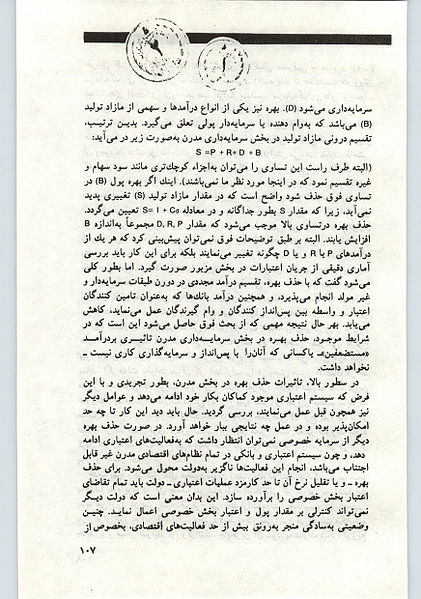 سرمایه‌داری می‌شود (D). بهره نیز یکی از انواع درآمدها و سهمی از مازاد تولید
(B) می‌باشد که به‌وام دهنده یا سرمایه‌دار پولی تعلق می‌گیرد. بدیـن ترتیـب،
تقسیم درونی مازاد تولید در بخش سرمایه‌داری مدرن به‌صورت زیر در می‌آید:
S =P + R+ D + B
(البته طرف راست این تساوی را می‌توان به‌اجزاء کوچك‌تری مانند سود سهام و
غیره تقسیم نمود که در اینجا مورد نظر ما نمی‌باشند). اینك اگر بهره پول (B) در
تساوی فوق حذف شود واضح است که در مقدار مازاد تولید (S) تغییری پدید
نمی‌آید، زیرا که مقدار S بطور جداگانه و در معادله S= I + Cs تعیین می‌گردد.
حذف بهره درتساوی بالا موجب می‌شود که مقدار D, R, P مجموعاً به‌اندازه B
افزایش یابند. البته بر طبق توضیحات فوق نمی‌توان پیش‌بینی کرد که هر یك از
درآمدهای P یا R و یا D چگونه تغییر می‌نمایند بلکه برای این کار باید بررسی
آماری دقیقی از جریان اعتبارات در بخش مزبور صورت گیرد. اما بطور کلی
می‌شود گفت که با حذف بهره، تقسیم درآمد مجددی در درون طبقات سرمایه‌دار و
غیر مولد انجام می‌پذیرد، و همچنین درآمد بانك‌ها که به‌عنوان تامین کنندگان
اعتبار و واسطه بین پس‌انداز کنندگان و وام گیرندگان عمل می‌نماید، کاهش
می‌یابد. بهر حال نتیجه مهمی که از بحث فوق حاصل می‌شود این است که در
شرایط موجـود، حذف بهـره در بخش سرمایـه‌داری مدرن تاثیـری بردرآمـد
«مستضعفین»ـ یاکسانی که آنان‌را با پس‌انداز و سرمایه‌گذاری کاری نیست ـ
نخواهد داشت.
در سطور بالا، تاثیرات حذف بهره در بخش مدرن، بطور تجریدی و با این
فرض که سیستم اعتباری موجود کماکان بکار خود ادامه می‌دهد و عوامل دیگر
نیز همچون قبل عمل می‌نمایند، بررسی گردید. حال باید دید این کار تا چه حد
امکان‌پذیر بوده و در عمل چه نتایجی ببار خواهد آورد. در صورت حذف بهره
دیگر از سرمایه خصوصی نمی‌توان انتظار داشت که به‌فعالیت‌های اعتباری ادامه
دهد، و چون سیستم اعتباری و بانکی در تمام نظام‌های اقتصادی مدرن غیر قابل
اجتناب می‌باشد، انجام این فعالیت‌ها ناگزیر به‌دولت محول می‌شود. برای حذف
بهره ـ و یا تقلیل نرخ آن تا حد کارمزد عملیات اعتباری ـ دولت باید تمام تقاضای
اعتبار بخش خصوصی را برآورده سازد. این بدان معنی است که دولت دیـگر
نمی‌تواند کنترلی بر مقدار پول و اعتبار بخش خصوصی اعمال نمایـد. چنیـن
وضعیتی به‌سادگی منجر به‌رونق بیش از حد فعالیت‌های اقتصادی، بخصوص از
۱۰۷